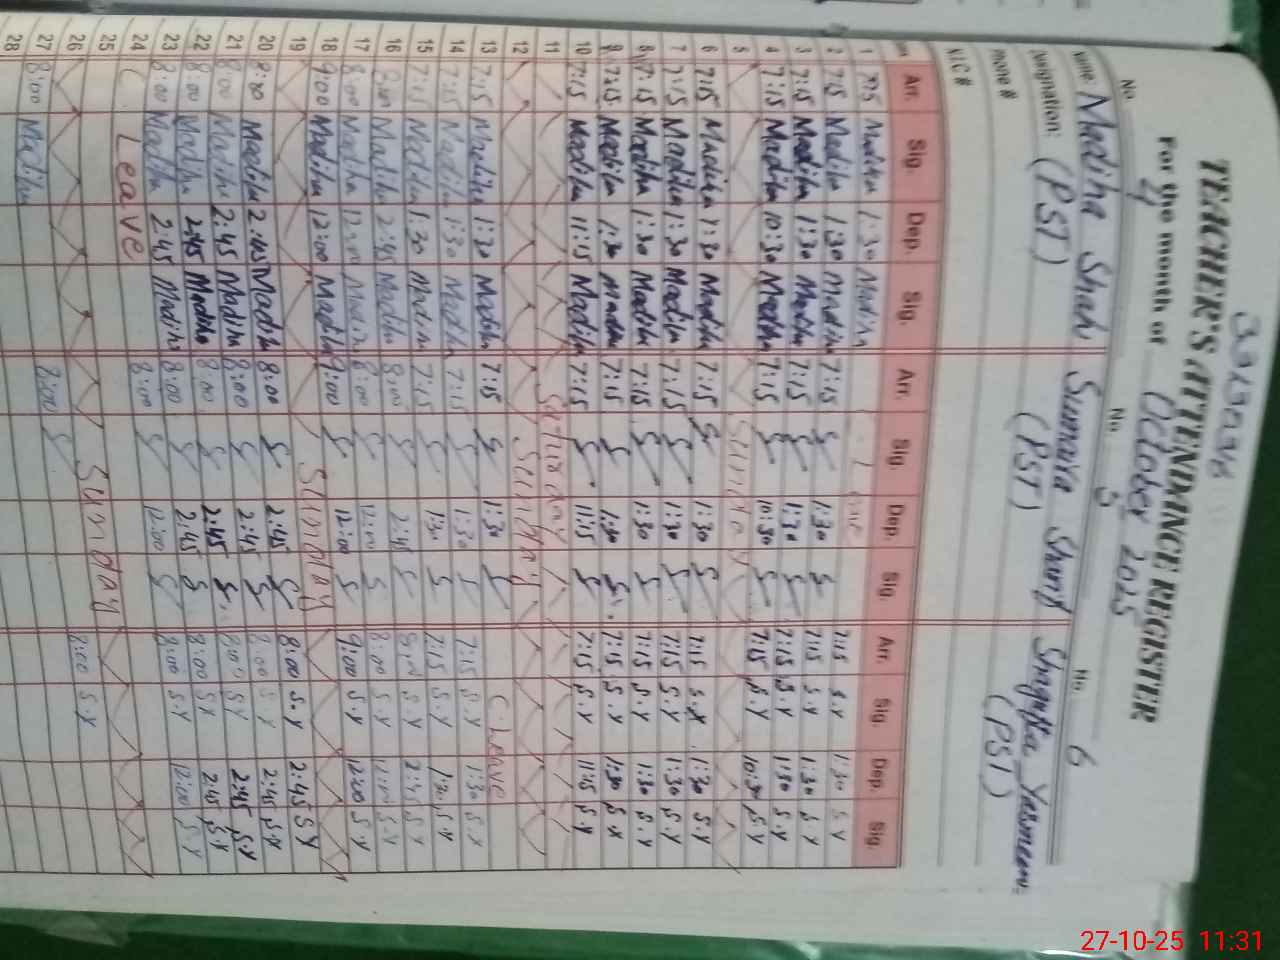 33130246
TEACHER'S ATTENDANCE REGISTER
For the month of October 2025
No. 4 No. 5 No. 6
Name: Madiha Shah Sumaira Sharif Shagufta Yasmeen
Designation: (PST) (PST) (PST)
Phone #
NIC #
Arr. Sig. Dep. Sig. Arr. Sig. Dep. Sig. Arr. Sig. Dep. Sig.
1 7:15 Madiha 1:30 Madiha 7:15 S.Y 1:30 S.Y
2 7:15 Madiha 1:30 Madiha 7:15 1:30 7:15 S.Y 1:30 S.Y
3 7:15 Madiha 1:30 Madiha 7:15 1:30 7:15 S.Y 1:30 S.Y
4 7:15 Madiha 10:30 Madiha 7:15 10:30 7:15 S.Y 10:30 S.Y
5 Sunday
6 7:15 Madiha 1:30 Madiha 7:15 1:30 7:15 S.Y 1:30 S.Y
7 7:15 Madiha 1:30 Madiha 7:15 1:30 7:15 S.Y 1:30 S.Y
8 7:15 Madiha 1:30 Madiha 7:15 1:30 7:15 S.Y 1:30 S.Y
9 7:15 Madiha 1:30 Madiha 7:15 1:30 7:15 S.Y 1:30 S.Y
10 7:15 Madiha 11:15 Madiha 7:15 11:15 7:15 S.Y 11:15 S.Y
11 Saturday
12 Sunday
13 7:15 Madiha 1:30 Madiha 7:15 1:30 C. Leave
14 7:15 Madiha 1:30 Madiha 7:15 1:30 7:15 S.Y 1:30 S.Y
15 7:15 Madiha 1:30 Madiha 7:15 1:30 7:15 S.Y 1:30 S.Y
16 8:00 Madiha 2:45 Madiha 8:00 2:45 8:00 S.Y 2:45 S.Y
17 8:00 Madiha 12:00 Madiha 8:00 12:00 8:00 S.Y 12:00 S.Y
18 9:00 Madiha 12:00 Madiha 9:00 12:00 9:00 S.Y 12:00 S.Y
19 Sunday
20 8:00 Madiha 2:45 Madiha 8:00 2:45 8:00 S.Y 2:45 S.Y
21 8:00 Madiha 2:45 Madiha 8:00 2:45 8:00 S.Y 2:45 S.Y
22 8:00 Madiha 2:45 Madiha 8:00 2:45 8:00 S.Y 2:45 S.Y
23 8:00 Madiha 2:45 Madiha 8:00 2:45 8:00 S.Y 2:45 S.Y
24 C. Leave 8:00 12:00 8:00 S.Y 12:00 S.Y
25
26 Sunday
27 8:00 Madiha 8:00 8:00 S.Y
28
27-10-25 11:31